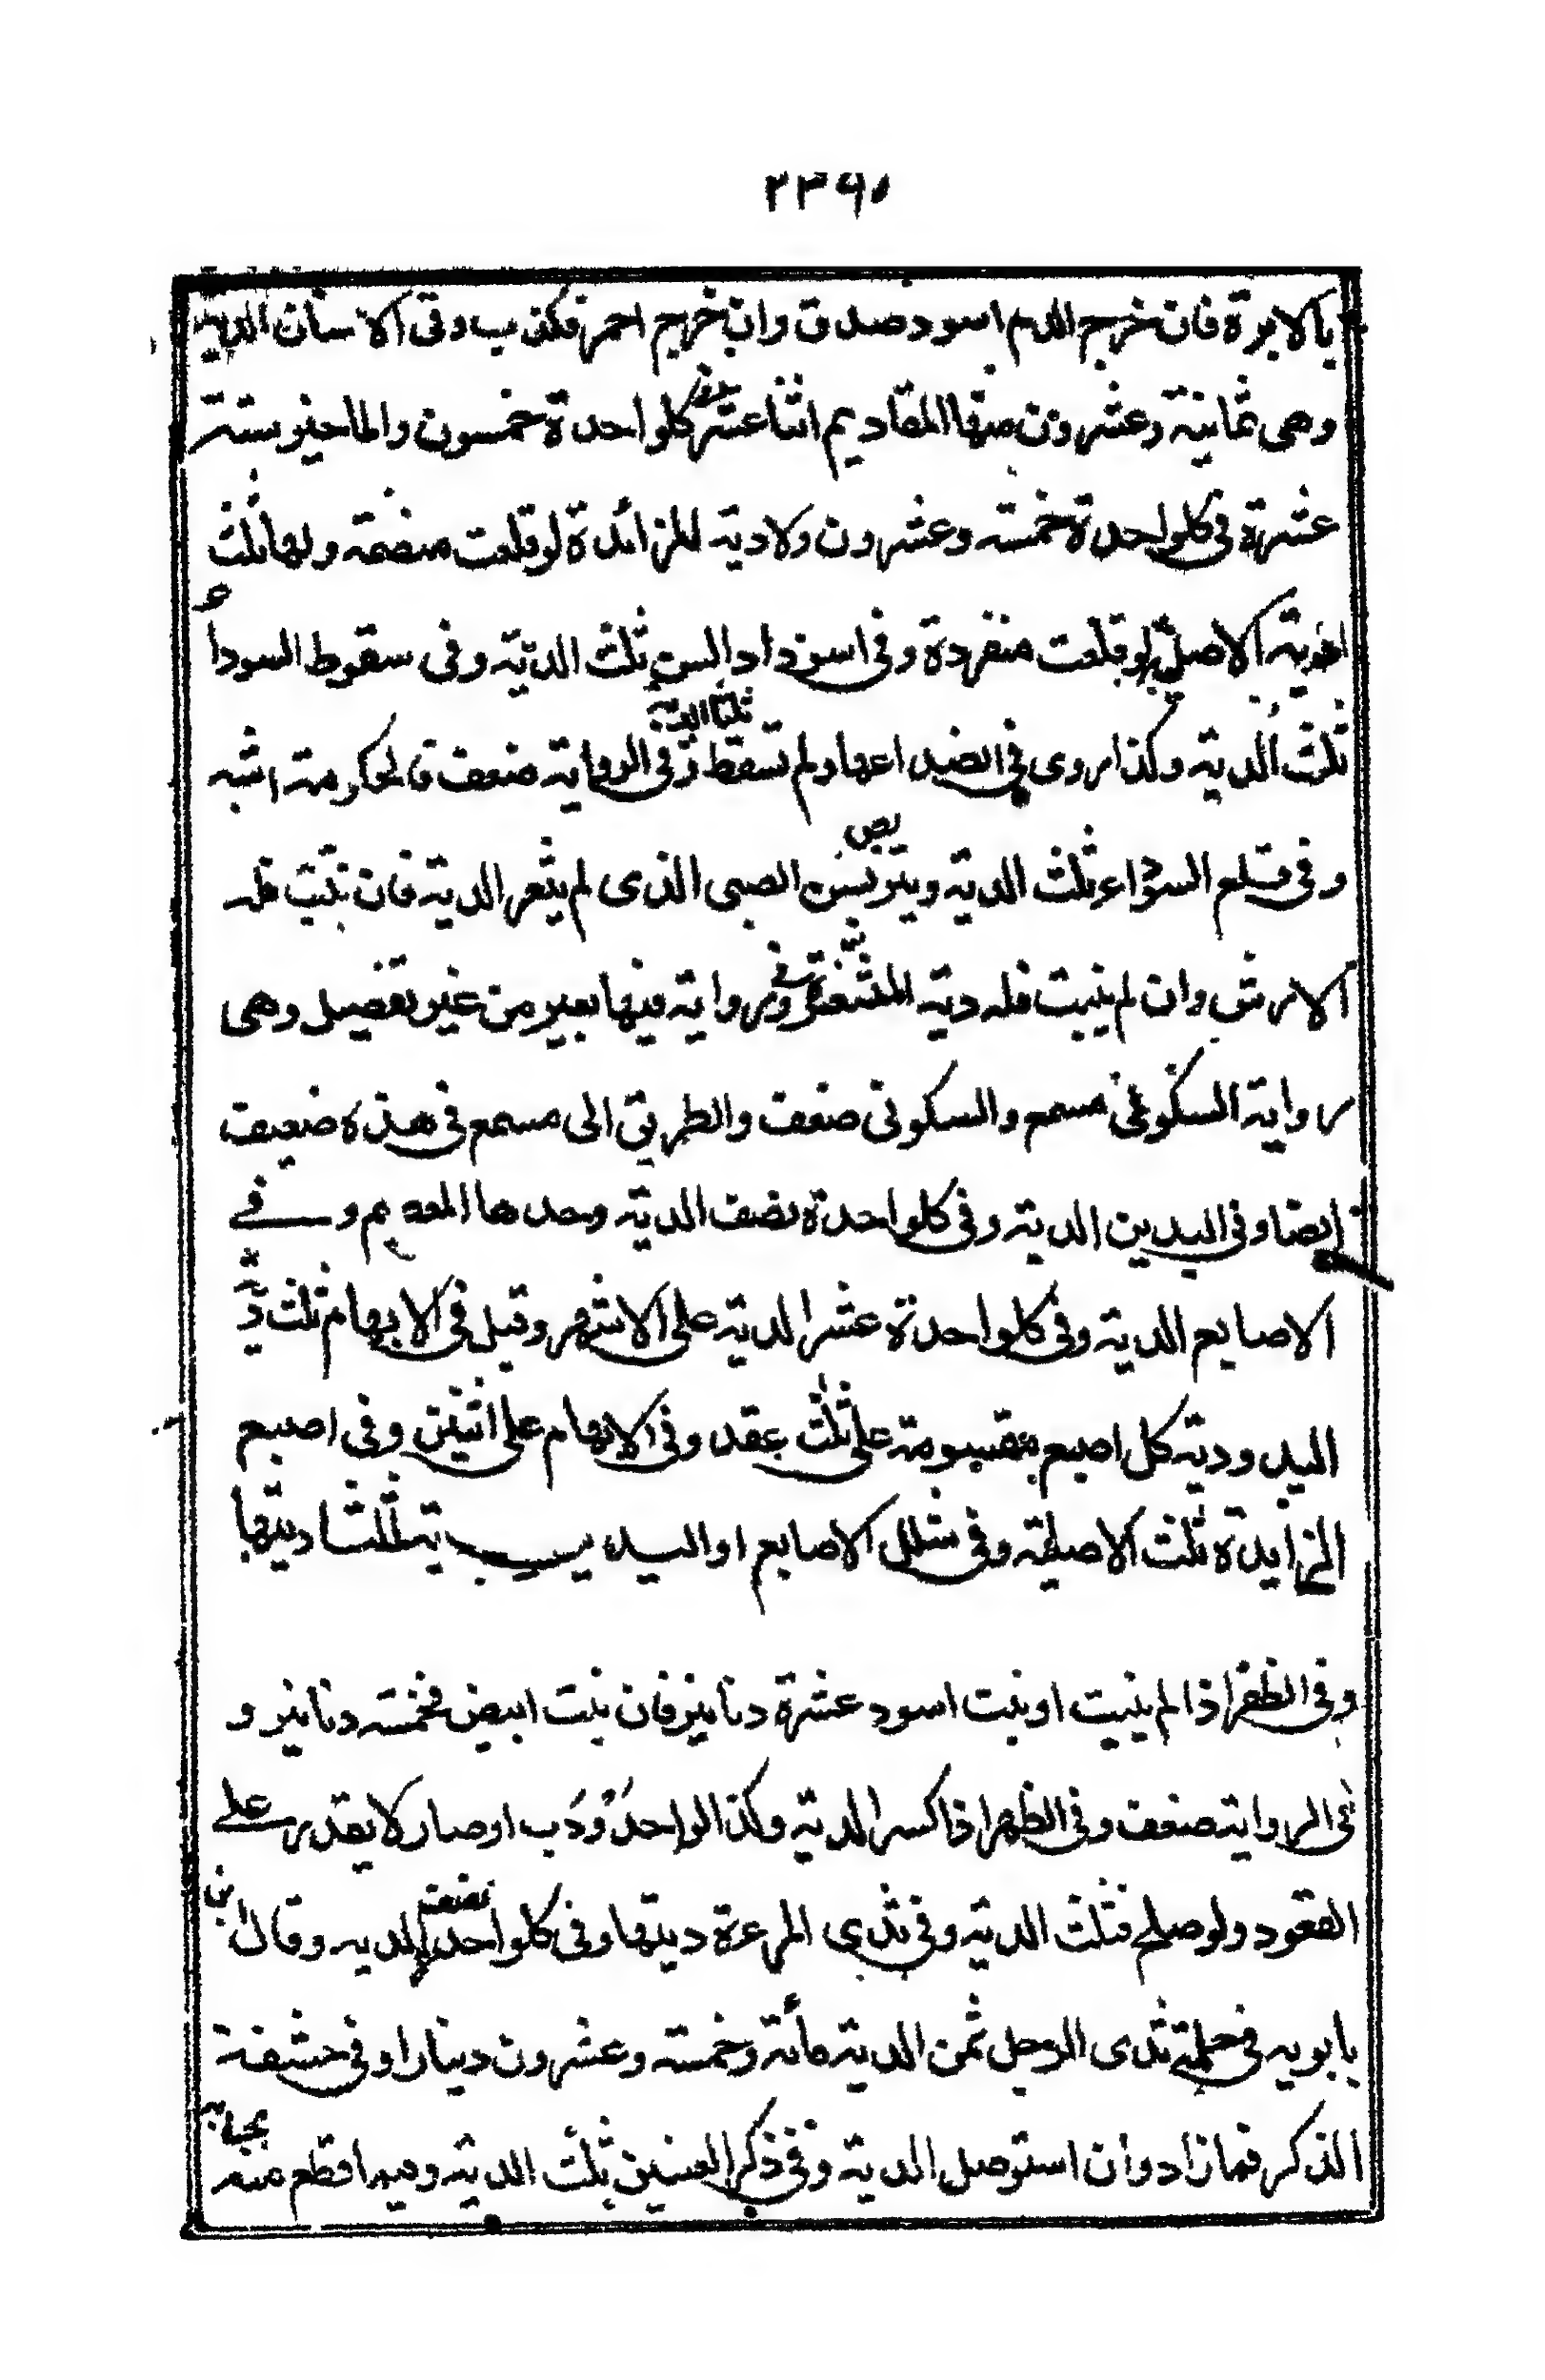 ٢٣٩٠
بالابرة فان خرج الدم اسود صدق وان خرج احمر فكذب وفى الاسنان الدية
وهى ثمانية وعشرون منها المقاديم اثنا عشر فى كلواحدة خمسون والماخير ستة
عشرة فى كلواحدة خمسة وعشرون ولا دية للزائدة لو قلعت منضمة ولها ثلث
دية الاصلية لو قلعت منفردة وفى اسوداد السن ثلث الدية وفى سقوط السوداء
ثلث الدية وكذا روى فى انصداعها ولم تسقط ثلثا الدية وفى الرواية ضعف فالحكومة اشبه
وفى قلع السوداء ثلث الدية ويتربص بسن الصبى الذى لم يثغر الدية فان نبت فله
الارش وان لم ينبت فله دية المثغر وفى رواية فيها بعير من غير تفصيل وهى
رواية السكونى عن مسمع والسكونى ضعف والطريق الى مسمع فى هذه ضعيف
ايضا وفى اليدين الدية وفى كلواحدة نصف الدية وحدها المعصم وفے
الاصابع الدية وفى كلواحدة عشر الدية على الاشهر وقيل فى الابهام ثلث دية
اليد ودية كل اصبع مقسومة على ثلث عقد وفى الابهام على اثنين وفى اصبع
الزايدة ثلث الاصلية وفى شلل الاصابع او اليد ين ثلثا ديتها
وفى الظفر اذا لم ينبت او نبت اسود عشرة دنانير فان نبت ابيض فخمسة دنانير و
فى الرواية ضعف وفى الظهر اذا كسر الدية وكذا لو احدودب او صار لا يقدر علے
القعود ولو صلح فثلث الدية وفى ثدى المرءة ديتها وفى كلواحد نصف الديه وقال ابن
بابويه فى حلمة ثدى الرجل ثمن الدية مأئة وخمسة وعشرون دينارا وفى حشفة
الذكر فمازاد وان استوصل الدية وفى ذكر العنين ثلث الدية وفيما قطع منه بحسابه